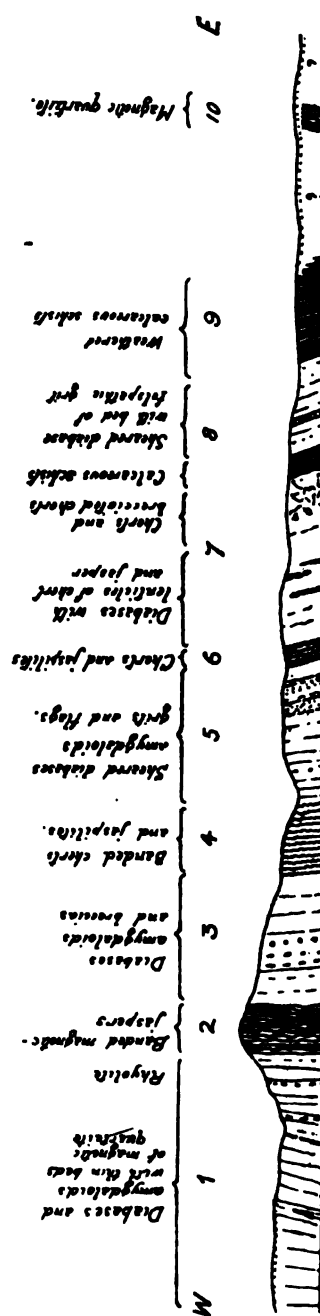 W
Diabases and
amygdaloids
with thin beds
of magnetic
quartzite
Rhyolite
Banded magnetic-
jaspers
Diabases
amygdaloids
and breccias
Banded cherts
and jaspilites.
Sheared diabases
amygdaloids
grits and flags.
Cherts and jaspilites
Diabases with
lenticles of chert
and jasper
Cherts and
brecciated cherts
Calcareous schists
Sheared diabase
with bed of
felspathic grit
Weathered
calcareous schists
Magnetic quartzite.
E
1 2 3 4 5 6 7 8 9 10
? ?